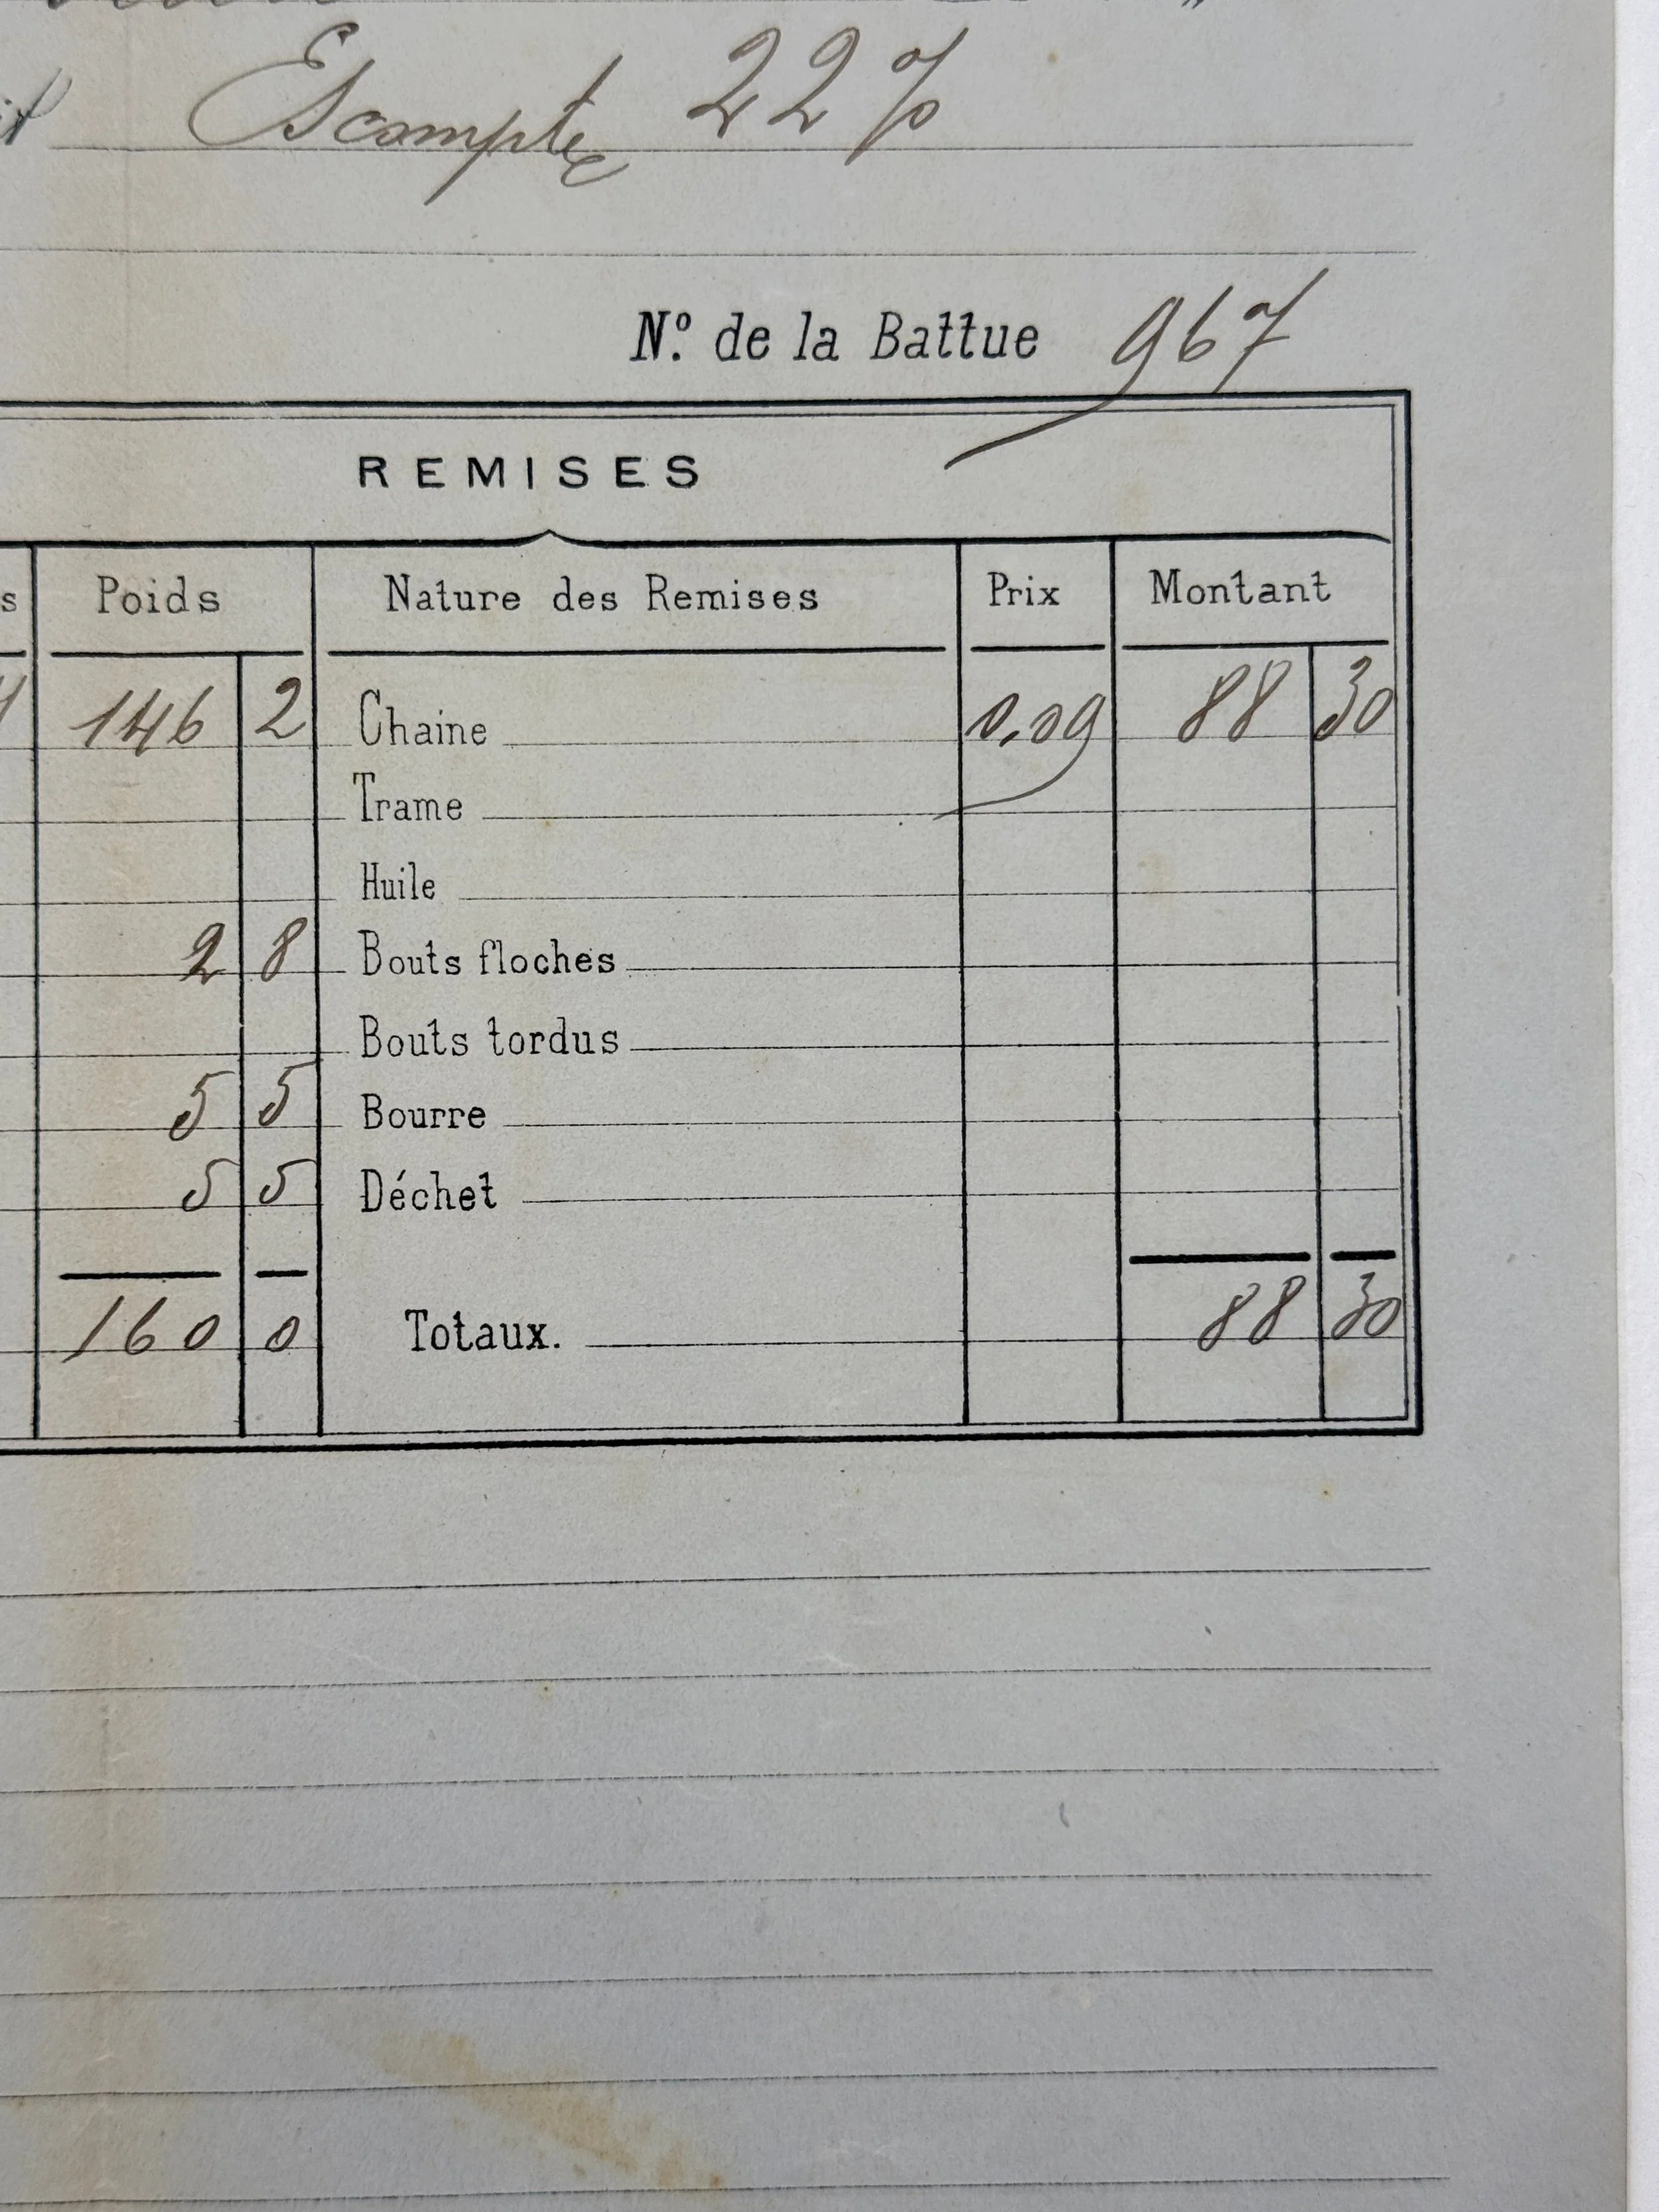 Escompte 22 %
N.º de la Battue 967
REMISES
Poids Nature des Remises Prix Montant
146 2 Chaine 0,09 88 30
Trame
Huile
2 8 Bouts floches
Bouts tordus
5 5 Bourre
5 5 Déchet
160 0 Totaux. 88 30